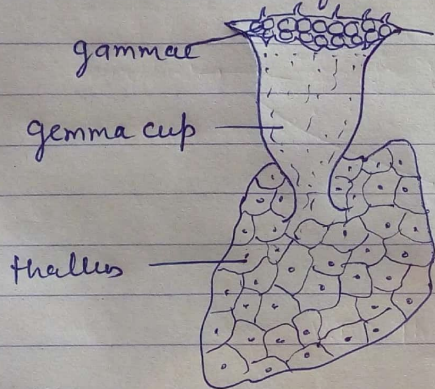 gammae
gemma cup
thallus